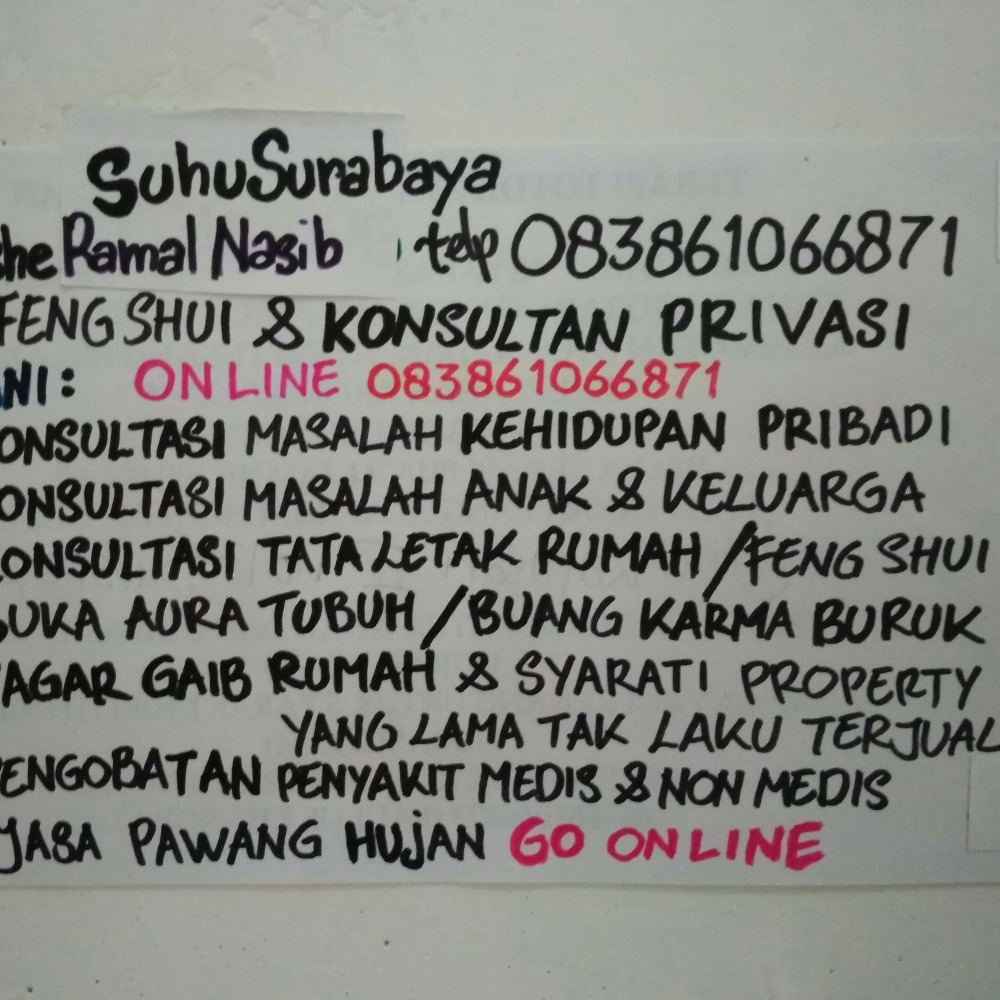 SuhuSurabaya
he Ramal Nasib telp 083861066871
FENG SHUI & KONSULTAN PRIVASI
NI: ONLINE 083861066871
ONSULTASI MASALAH KEHIDUPAN PRIBADI
ONSULTASI MASALAH ANAK & KELUARGA
KONSULTASI TATA LETAK RUMAH /FENG SHUI
BUKA AURA TUBUH /BUANG KARMA BURUK
AGAR GAIB RUMAH & SYARATI PROPERTY
YANG LAMA TAK LAKU TERJUAL
PENGOBATAN PENYAKIT MEDIS & NON MEDIS
JASA PAWANG HUJAN GO ONLINE